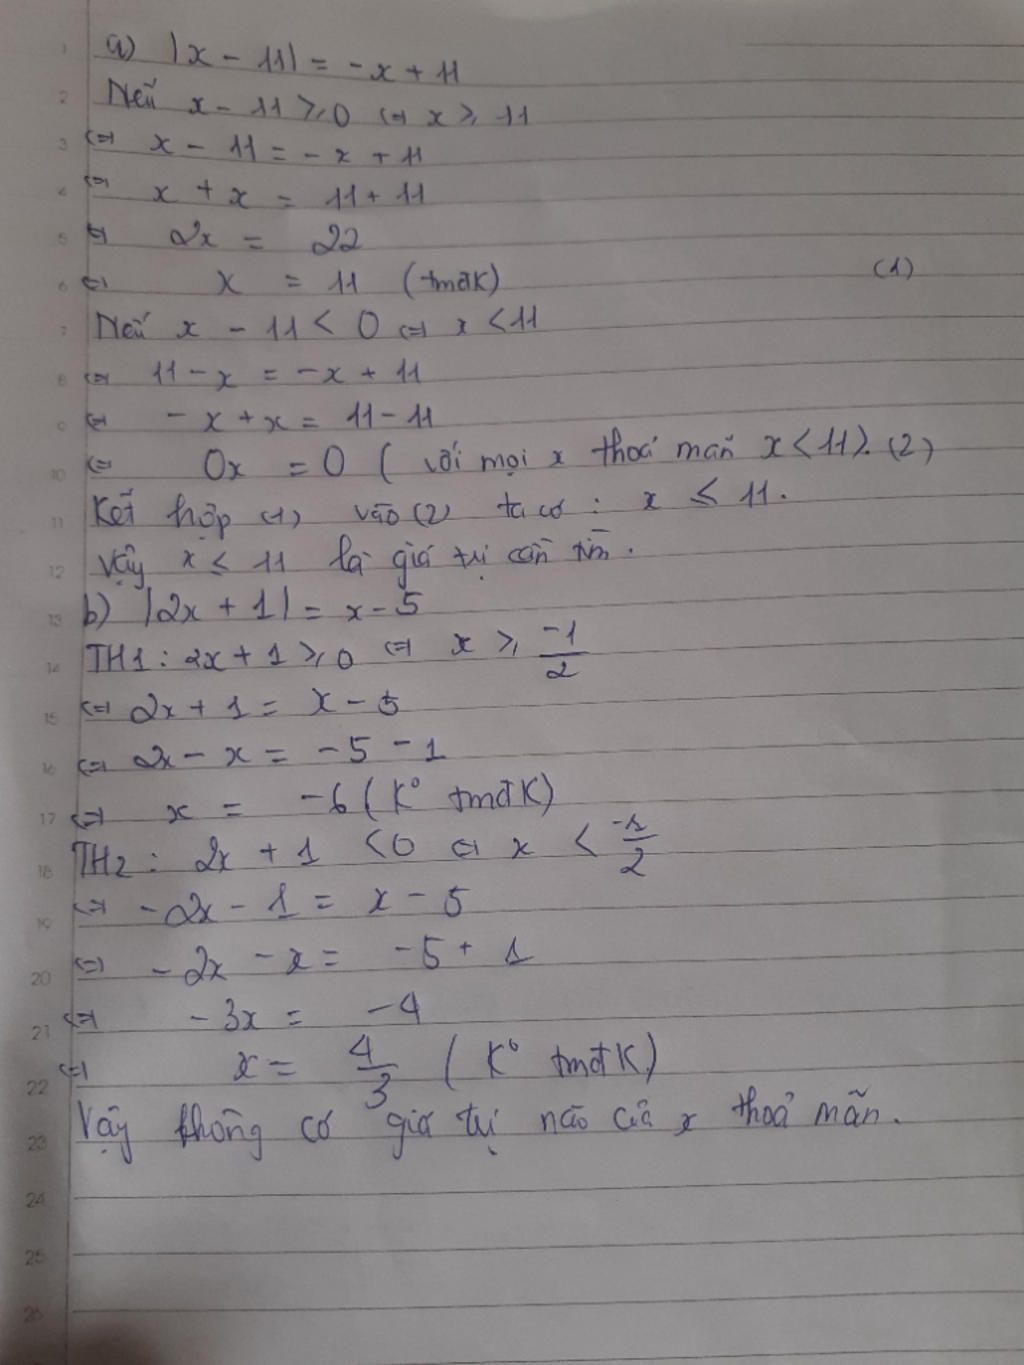 a) |x - 11| = -x + 11
Nếu x - 11 ⩾ 0 ⇔ x ⩾ 11
⇔ x - 11 = -x + 11
⇔ x + x = 11 + 11
⇔ 2x = 22
⇔ x = 11 (tmđK) (1)
Nếu x - 11 < 0 ⇔ x < 11
⇔ 11 - x = -x + 11
⇔ -x + x = 11 - 11
⇔ 0x = 0 ( với mọi x thoả mãn x < 11). (2)
Kết hợp (1) vào (2) ta có : x ⩽ 11.
Vậy x ⩽ 11 là giá trị cần tìm.
b) |2x + 1| = x - 5
TH1 : 2x + 1 ⩾ 0 ⇔ x ⩾ -1/2
⇔ 2x + 1 = x - 5
⇔ 2x - x = -5 - 1
⇔ x = -6 (K° tmđK)
TH2 : 2x + 1 < 0 ⇔ x < -1/2
⇔ -2x - 1 = x - 5
⇔ -2x - x = -5 + 1
⇔ -3x = -4
⇔ x = 4/3 (K° tmđK)
Vậy không có giá trị nào của x thoả mãn.